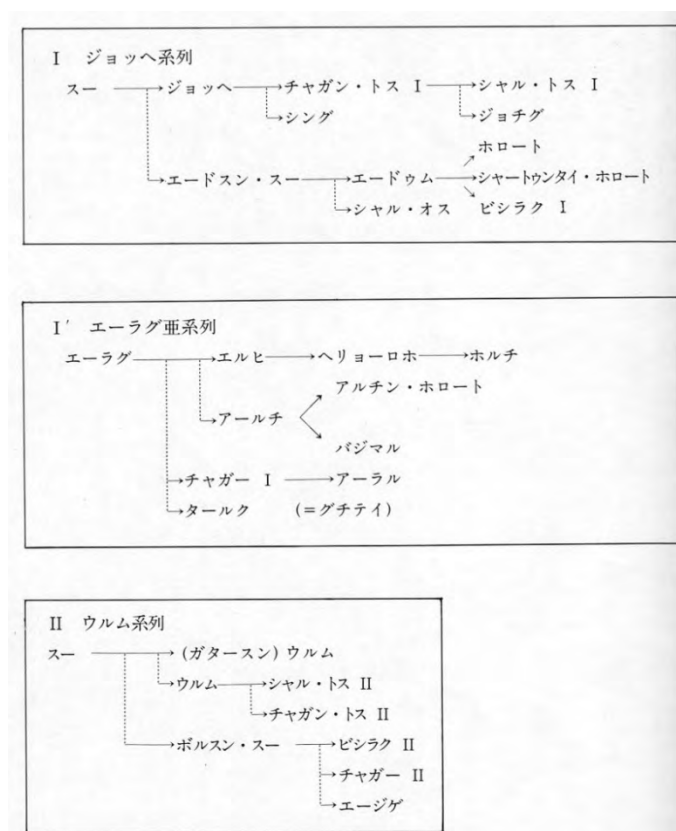 I ジョッヘ系列
スー ジョッヘ チャガン・トス I シャル・トス I
シング ジョチグ
ホロート
エードスン・スー エードゥム シャートゥンタイ・ホロート
シャル・オス ビシラク I
I′ エーラグ亜系列
エーラグ エルヒ ヘリョーロホ ホルチ
アルチン・ホロート
アールチ
バジマル
チャガー I アーラル
タールク (=グチテイ)
II ウルム系列
スー (ガタースン) ウルム
ウルム シャル・トス II
チャガン・トス II
ボルスン・スー ビシラク II
チャガー II
エージゲ